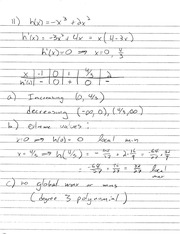 11) h(x) = -x³ + 2x²
h'(x) = -3x² + 4x = x(4-3x)
h'(x)=0 ⇒ x=0, 4/3
x | -1 | 0 | 1 | 4/3 | 2
h'(x) | - | 0 | + | 0 | -
a) Increasing (0, 4/3)
decreasing (-∞,0), (4/3,∞)
b) Extreme values:
x=0 ⇒ h(0) = 0 local min
x=4/3 ⇒ h(4/3) = -64/27 + 2·16/9 =
-64/27 + 96/27 = 32/27 local max
c) no global max or mins
(degree 3 polynomial)